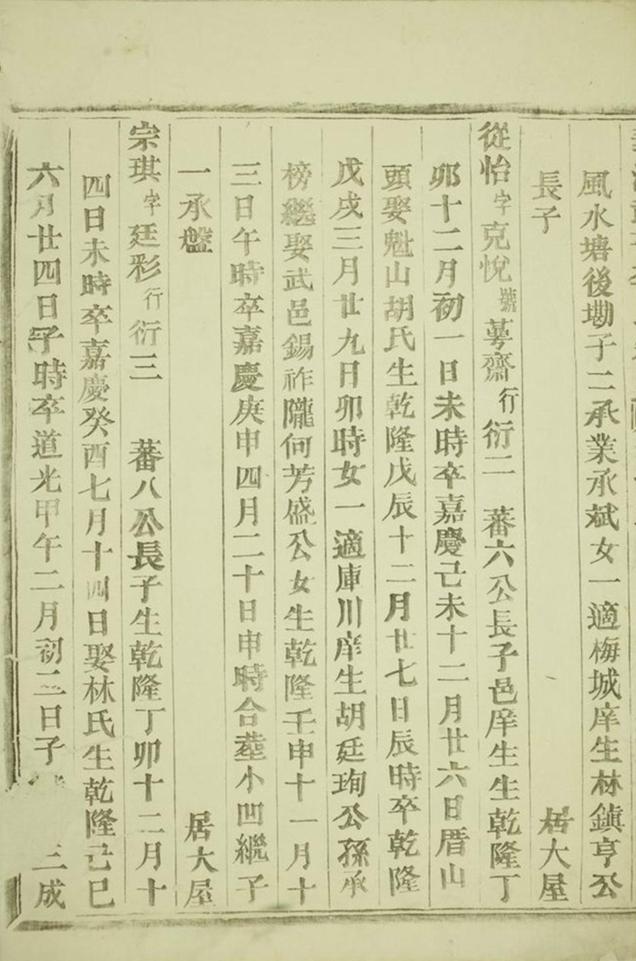 風水塘後塛子二承業承斌女一適梅城庠生林鎮亨公
長子　居大屋
從怡字克悅號蕚齋行衍二　蕃六公長子邑庠生生乾隆丁
卯十二月初一日未時卒嘉慶己未十二月廿六日厝山
頭娶魁山胡氏生乾隆戊辰十二月廿七日辰時卒乾隆
戊戌三月廿九日卯時女一適庫川庠生胡廷珣公孫承
榜繼娶武邑錫祚隴何芳盛公女生乾隆壬申十一月十
三日午時卒嘉慶庚申四月二十日申時合塟小凹繼子
一承盤　居大屋
宗琪字廷彩行衍三　蕃八公長子生乾隆丁卯十二月十
四日未時卒嘉慶癸酉七月十四日娶林氏生乾隆己巳
六月廿四日子時卒道光甲午二月初二日子　三成